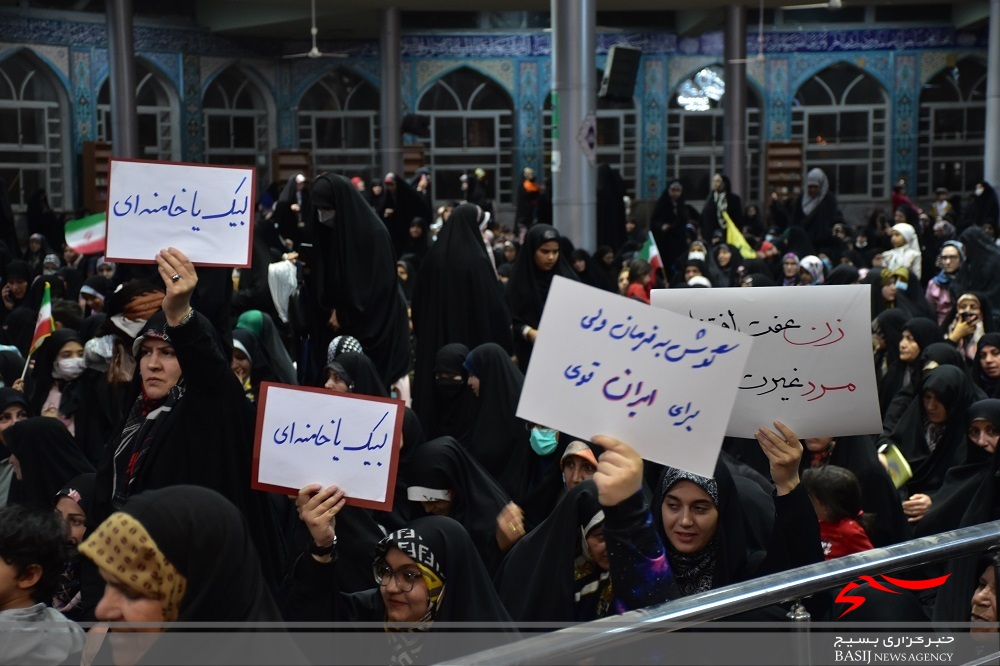 لبیک یا خامنه‌ای
لبیک یا خامنه‌ای
گوش به فرمان ولی
برای ایران قوی
زن عفت
مرد غیرت
خبرگزاری بسیج
BASIJ NEWS AGENCY